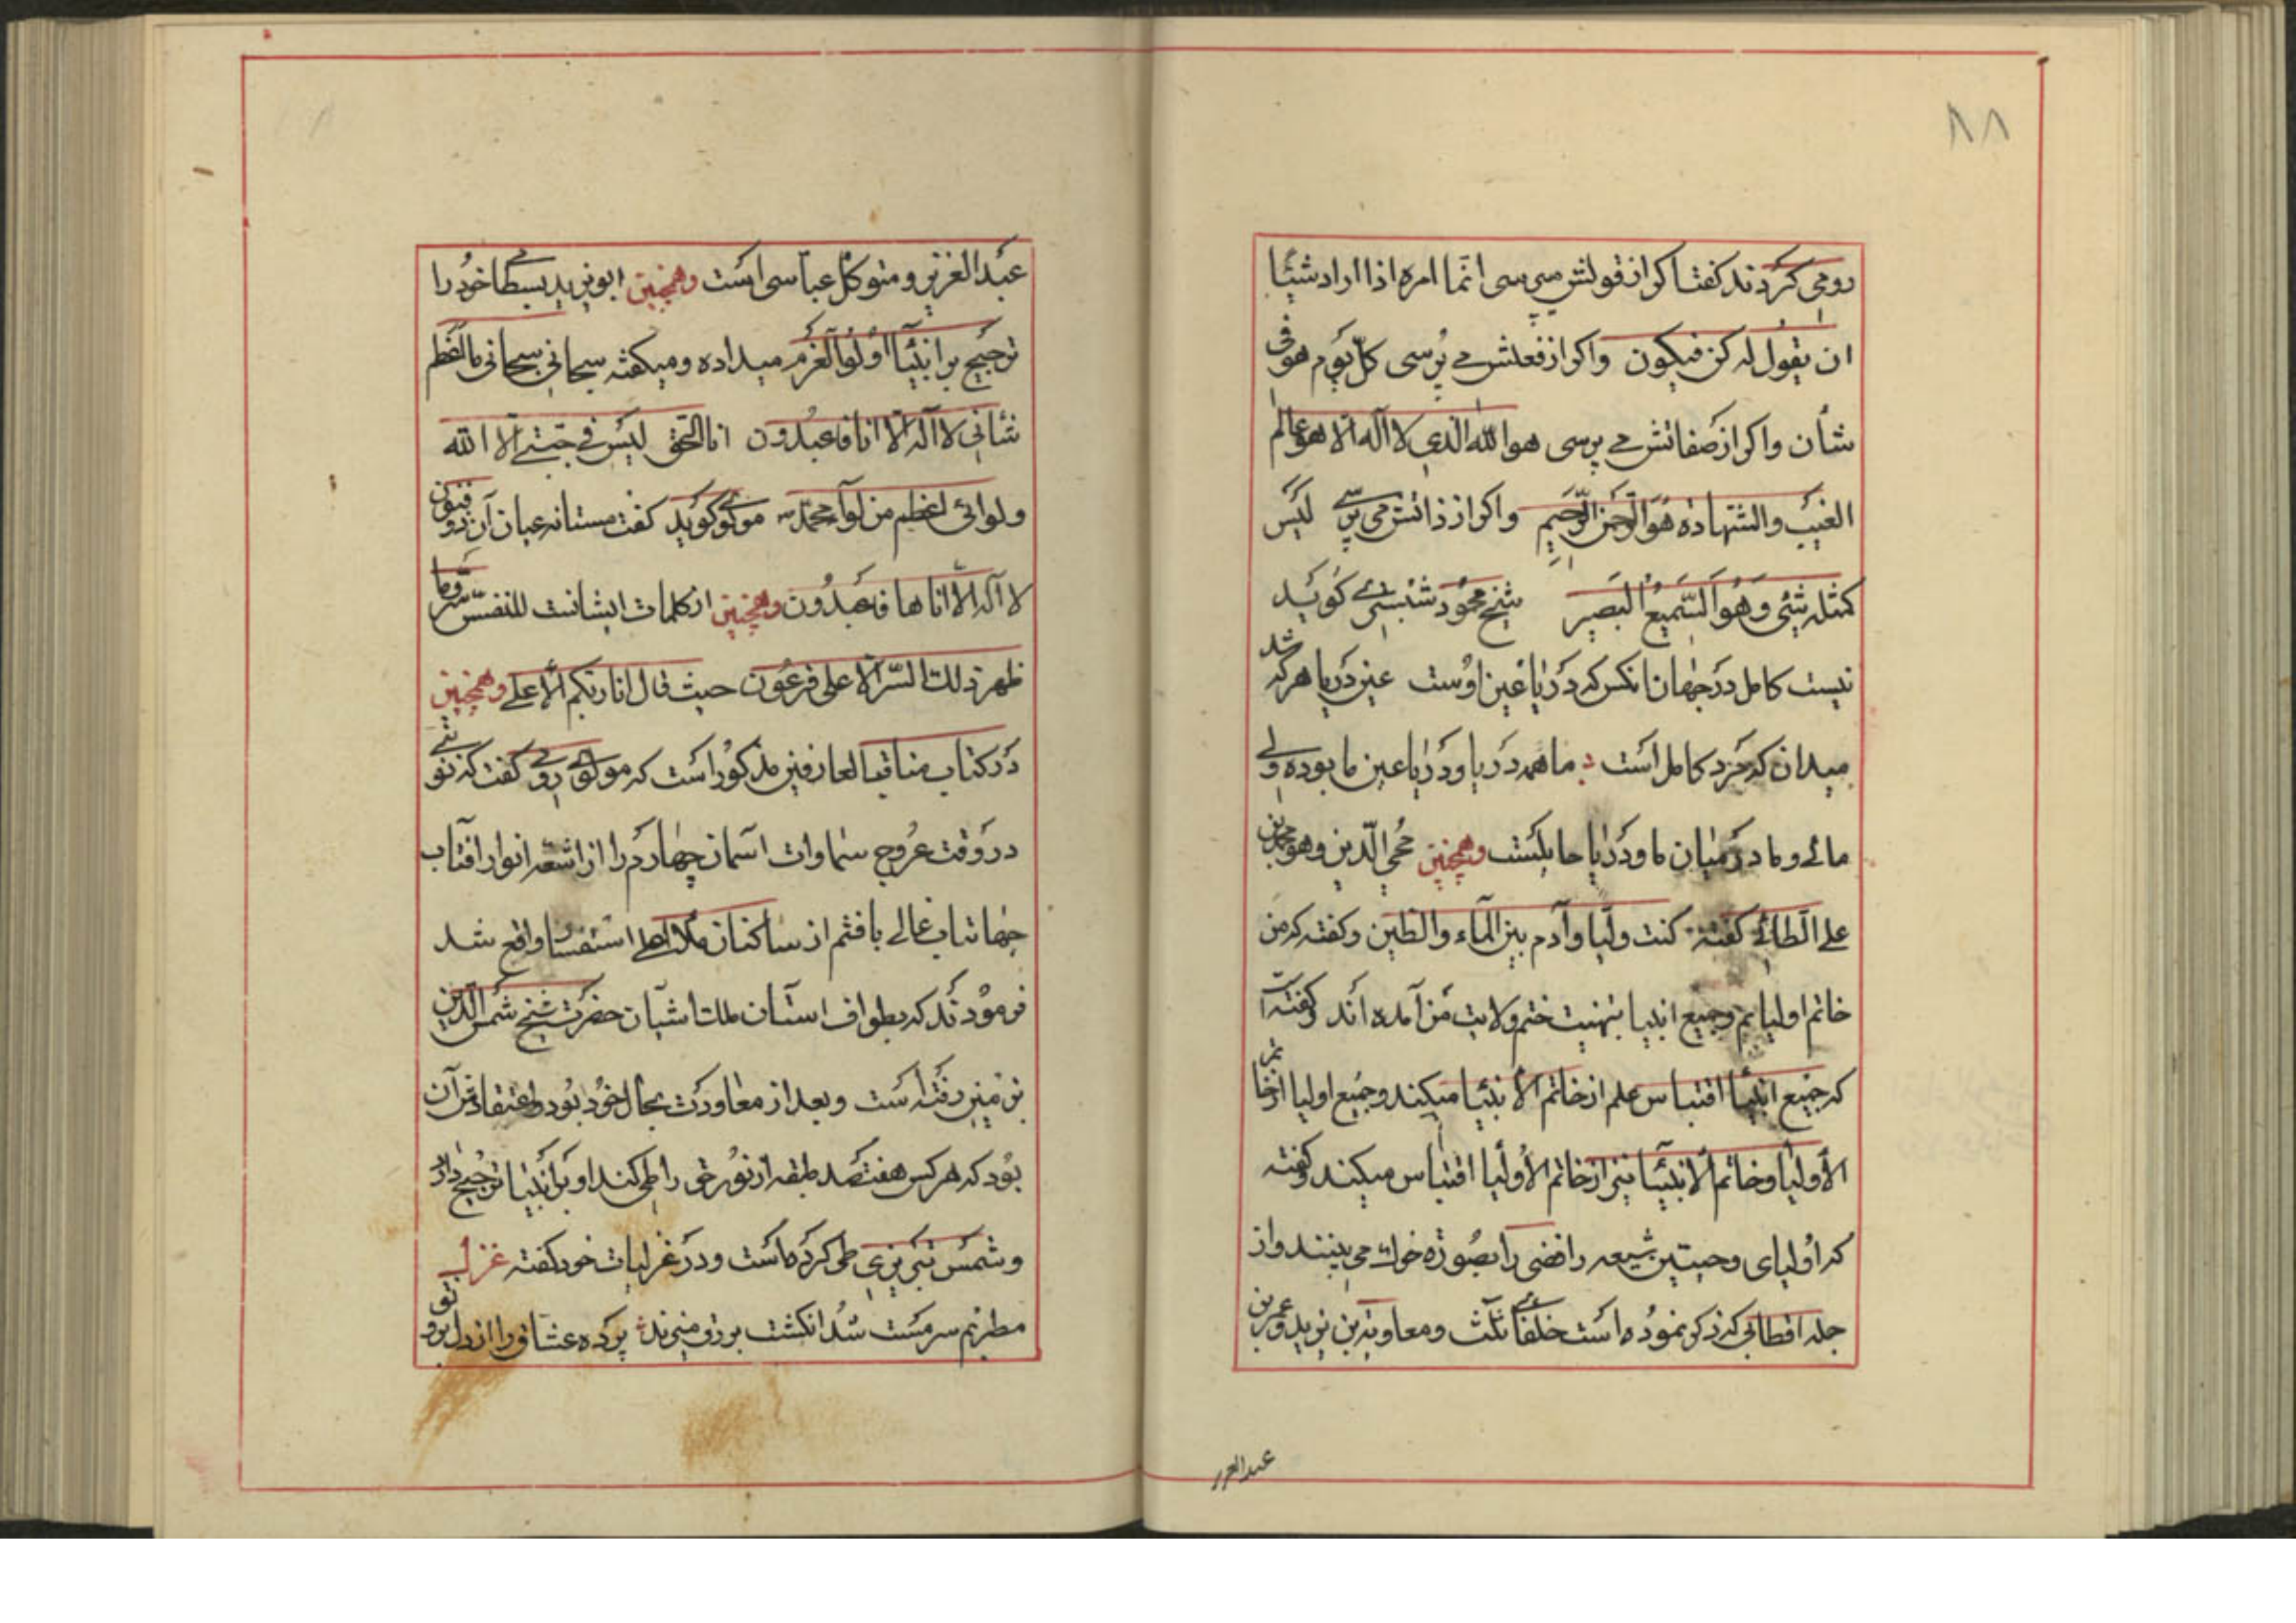 ۸۸
رومی کردند کفتا کر از قولش می پرسی انّما امره اذا اراد شیئًا
ان یقول له کن فیکون واکر از فعلش می پُرسی کلّ یوم هو فی
شأن واکر از صفاتش می پرسی هو الله الّذی لا آله الّا هو عالم
الغیب والشّهادة هو الرّحمن الرّحیم واکر از ذاتش می پرسی لیس
کمثله شیئی و هو السّمیع البصیر شیخ محمود شبستری کوید
نیست کامل در جهان انکس که دریا عین اوست عین دریا هر که شد
میدان که مرد کامل است ما همه دریا و دریا عین ما بوده ولی
مائی و ما در میان ما و دریا حایلست وهمچنین محی الدّین وهو محمد بن
علی الطائی کفته کنت ولیا و آدم بین المآء والطین وکفته که من
خاتم اولیایم وجمیع انبیا بتهنیت ختم ولایت من آمده اند وکفته است
که جمیع انبیا اقتباس علم از خاتم الأنبیا میکند وجمیع اولیا از خاتم
الأولیا وخاتم الانبیا نیز از خاتم الأولیا اقتباس میکیند وکفته
که اولیای وحبتین شیعه رافضی را بصورة خوک می بینند واز
جمله اقطابی که ذکر نموده است خلفائی ثلث ومعاویة بن یزید وعمر بن
عبد العزیز
عبد العزیز و متوکل عباسی است وهمچنین ابویزید بسطامی خود را
ترجیح بر انبیاء اولوا العزم میداده ومیکفته سبحانی سبحانی ما اعظم
شأنی لا اله الّا انا فاعبدون انا الحقّ لیس فی جبّتی الّا الله
ولوائی اعظم من لوآء محمد مولوی کوید کفت مستانه عیان آن ذو فنون
لا آله الّا انا ها فاعبدون وهمچنین از کلمات ایشانست للنفس سرّ وما
ظهر ذلک السّر الّا علی فرعون حیث قال انا ربّکم الأعلی وهمچنین
در کتاب مناقب العارفین مذکور است که مولوی رومی کفت که نوبتی
در وقت عروج سماوات اسمان چهارم را از اشعه انوار افتاب
جهانتاب خالی یافتم از ساکنان ملاء اعلی استفسار واقع شد
فرمودند که بطواف استان ملک اشیان حضرت شیخ شمس الدین
بزمین رفته است وبعد از معاودت بحال خود بود واعتقاد قرآن
بود که هر کس هفتصد طبقه از نور حق را طی کند او بر انبیا ترجیح دارد
وشمس تبریزی طی کرده است ودر غزلیات خود کفته غزل
مطربم سرمست شد انکشت بر رق میزند پرده عشاق را از دل برو